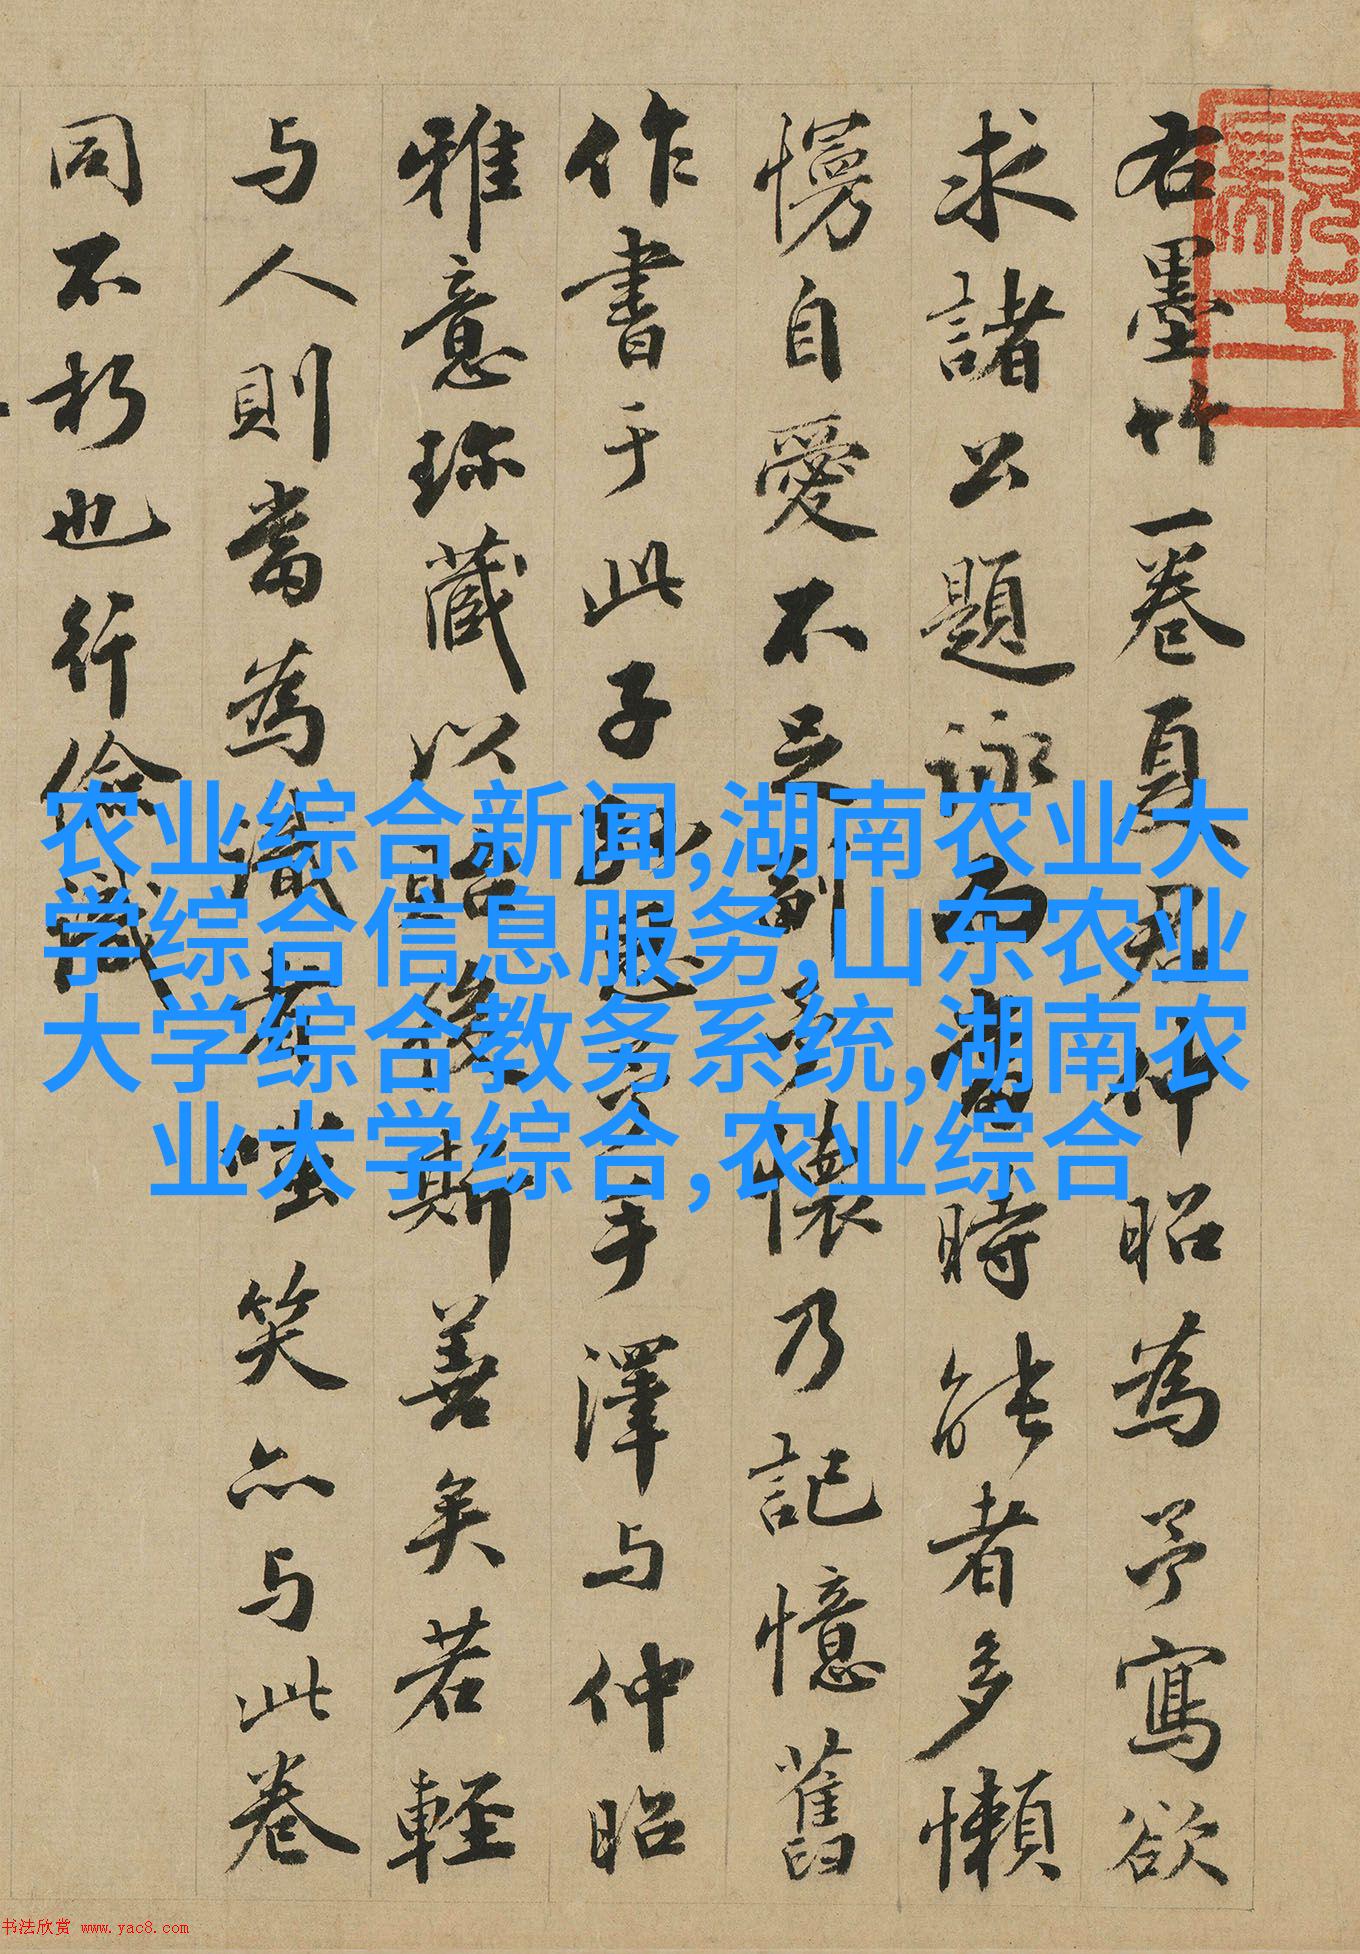 右墨竹一卷夏君仲昭為予寫欲
求諸公題詠而當時能者多懶
慢自愛不足副予懷乃記憶舊
作書于此子思手澤与仲昭
雅意珎藏以後斯善矣若輕
与人則當為識者嗤笑亦与此卷
同不朽也行儉識
农业综合新闻,湖南农业大
学综合信息服务,山东农业
大学综合教务系统,湖南农
业大学综合,农业综合
书法欣赏 www.yac8.com